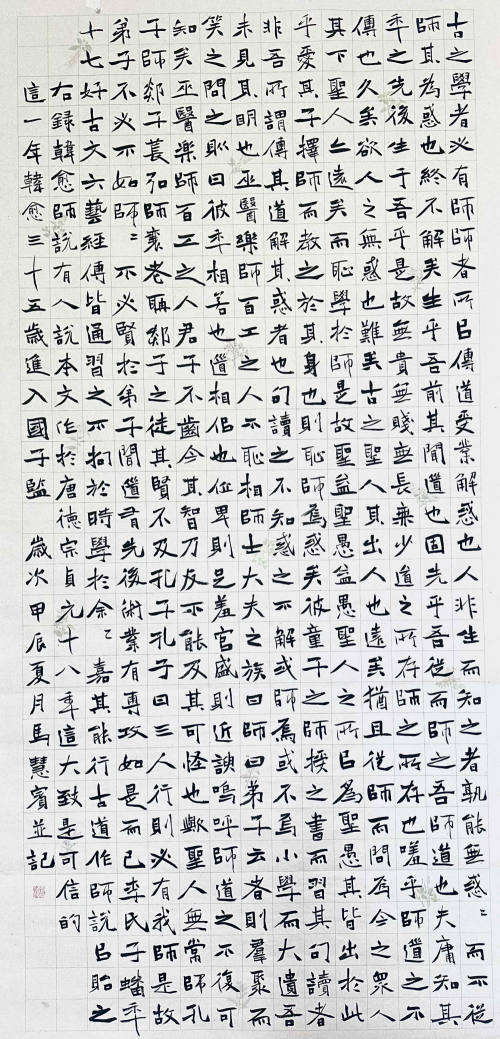 古之學者必有師師者所㠯傳道受業解惑也人非生而知之者孰能無惑〻而不從
師其為惑也終不解矣生乎吾前其聞道也固先乎吾從而師之吾師道也夫庸知其
秊之先後生于吾乎是故無貴無賤無長無少道之所存師之所存也嗟乎師道之不
傳也久矣欲人之無惑也難矣古之聖人其出人也遠矣猶且從師而問焉今之眾人
其下聖人亦遠矣而恥學於師是故聖益聖愚益愚聖人之所㠯為聖愚其皆出於此
乎愛其子擇師而教之於其身也則恥師焉惑矣彼童子之師授之書而習其句讀者
非吾所謂傳其道解其惑者也句讀之不知惑之不解或師焉或不焉小學而大遺吾
未見其明也巫醫樂師百工之人不恥相師士大夫之族曰師曰弟子云者則羣聚而
笑之問之則曰彼秊相若也道相侣也位卑則足羞官盛則近諛嗚呼師道之不復可
知矣巫醫樂師百工之人君子不齒今其智乃反不能及其可怪也歟聖人無常師孔
子師郯子萇弘師襄老聃郯子之徒其賢不及孔子孔子曰三人行則必有我師是故
弟子不必不如師〻不必賢於弟子聞道有先後術業有專攻如是而已李氏子蟠秊
十七好古文六藝經傳皆通習之不拘於時學於余〻嘉其能行古道作師說㠯貽之
右錄韓愈師說有人說本文作於唐德宗貞元十八秊這大致是可信的
這一年韓愈三十五歲進入國子監 歲次甲辰夏月馬慧賓並記